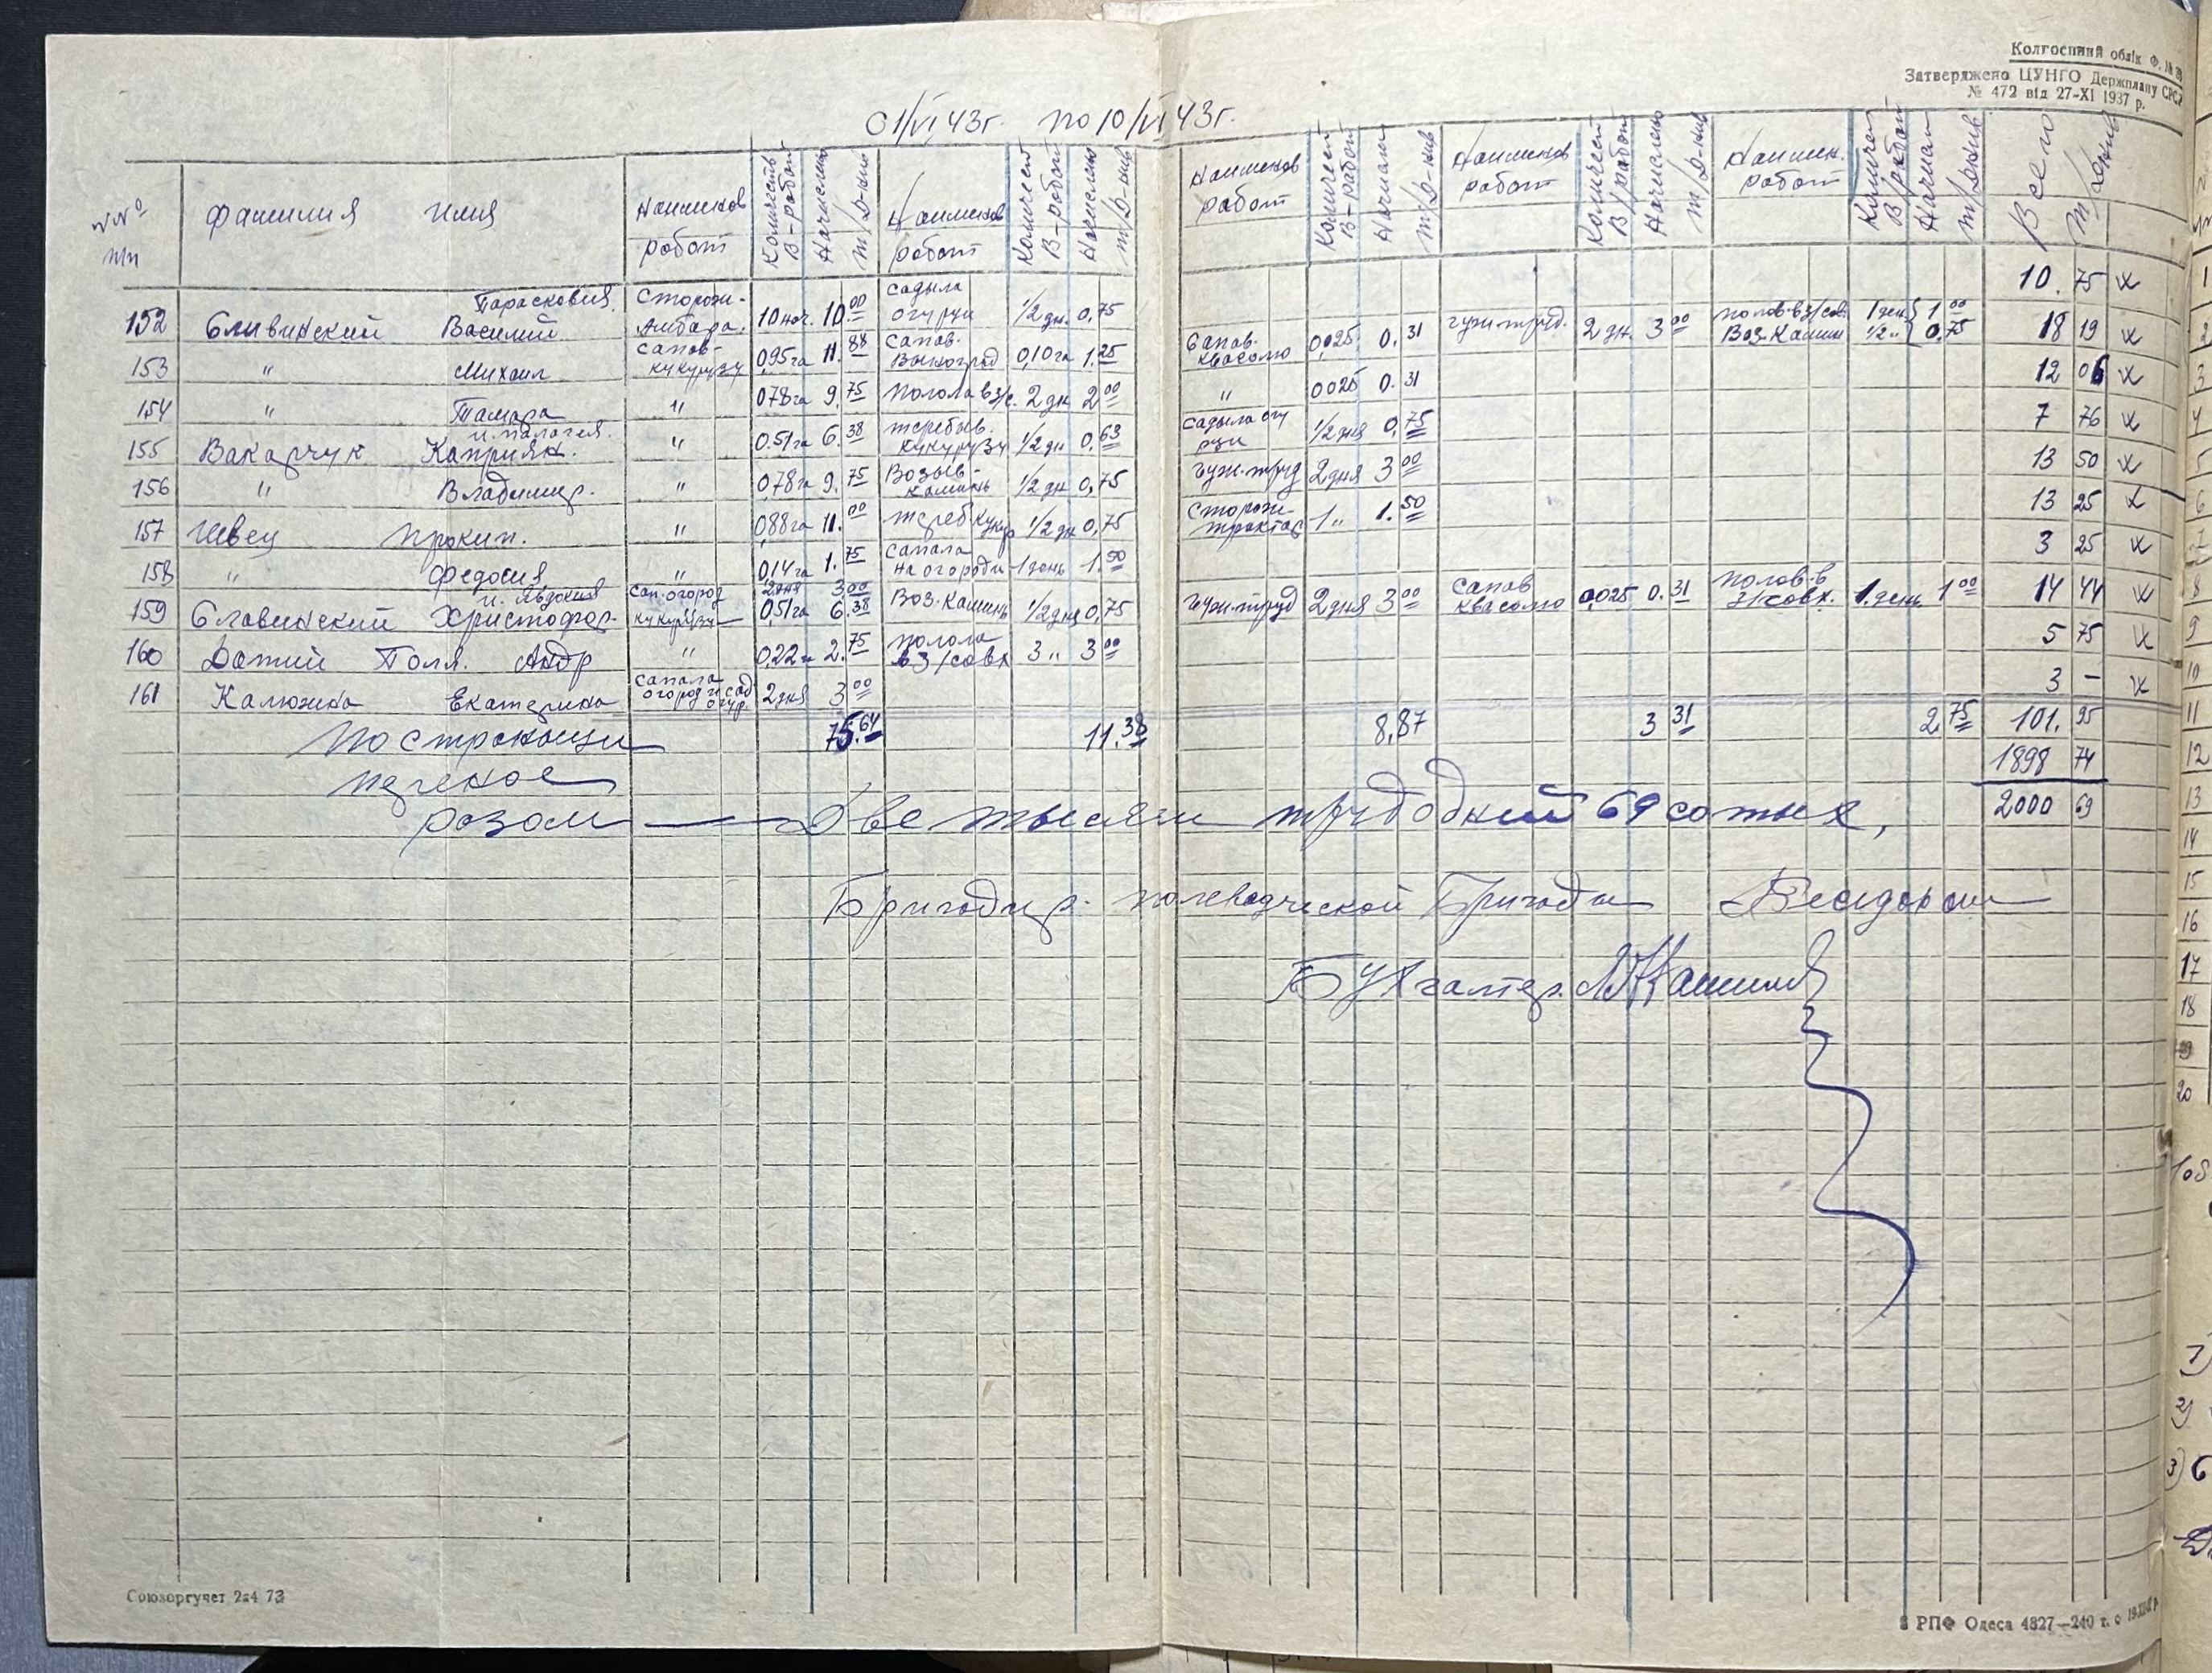 Колгоспний облік Ф. №
Затверджено ЦУНГО Держплану
№ 472 від 27-XI 1937 р.
С 1/VI 43г. по 10/VI 43г.
№№ п/п фамилия имя Наименов работ Количеств В-работ Начислено т/д-нив Наименов работ Количест В-работ Начислено т/д-нив Наименов работ Количест В-работ Начислен т/д-нив Наименов работ Количест В/работ Начислено т/д-нив Наимен. работ Количест В/работ Начислен т/днив Всего т/днив
152 Сливинский Василий Парасковия Сторож. Амбара. 10 ноч. 10.00 садыла огурци 1/2 дн. 0,75 10. 75
153 " Михаил сапов- кукурузу 0,95га 11.88 сапов. Виноград 0,10га 1.25 Сапов. квасолю 0,025 0.31 гуж.труд. 2 дн. 3 00 полов. в з/сов. 1 день 1 00 Воз. Камин 1/2 " 0.75 18 19
154 " Тамара " 0,78га 9.75 полола в з/с. 2 дн 2 00 " 0025 0.31 12 06
155 Вакарчук Каприян. и палагея. " 0.51га 6.38 теребыв. кукурузу 1/2 дн 0,63 садыла огурци 1/2 дня 0,75 7 76
156 " Владимир. " 0,78га 9.75 Возыв- камень 1/2 дн 0,75 гуж.труд 2 дня 3 00 13 50
157 Швец Прокип. " 0,88га 11.00 тереб кукур 1/2 дн 0,75 Сторож- трактор 1 " 1.50 13 25
158 " Федосия " 0,14га 1.75 сапала на огороди 1 день 1.50 3 25
159 Славинский Христофор. и. Явдокия сап. огород 2 дня 3.00 кукурузу 0,51га 6.38 Воз. Камень 1/2 дня 0,75 гуж.труд 2 дня 3 00 Сапов квасолю 0,025 0.31 полов-в з/совх. 1 день 1 00 14 44
160 Датий Поля. Андр " 0,22 2.75 полола в з/совх 3 " 3 00 5 75
161 Калюжна Екатерина сапала огород и сад огур. 2 дня 3 00 3 —
По странице 75.64 11.38 8,87 3 31 2 75 101. 95
1898 74
разом — Две тысячи трудодний 69 сотых, 2000 69
Бригадир. полеводческой Бригады
Бухгалтер.
1
2
3
4
5
6
7
8
9
10
11
12
13
14
15
16
17
18
20
Союзоргучет 2з4 73
РПФ Одеса 4827—240 т.